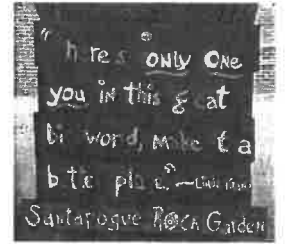 "There's only one
you in this great
big world, make it a
better place."
Santapogue Rock Garden